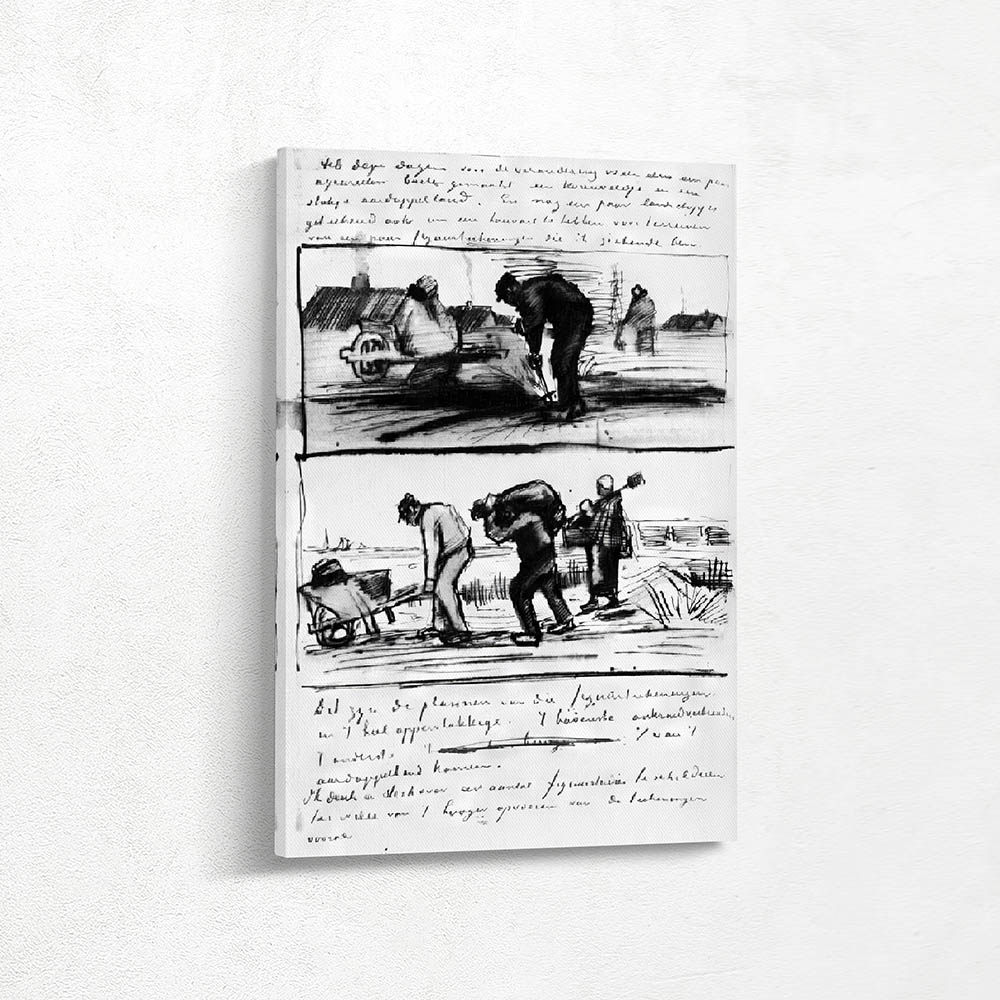 Heb deze dagen voor de verandering weer eens een paar
aquarellen gemaakt een en een
aardappelland. En nog een paar landschapjes
geteekend ook om een te hebben voor terreinen
van een paar figuurteekeningen die ik zoekende ben
Dit zijn de plannen van die figuurteekeningen.
in 't heel oppervlakkige. 't bovenste onkruidverbranden,
't onderste 't van 't
aardappelland komen.
Ik denk er sterk over een aantal figuurstudies te schilderen
ter wille van 't hooger opvoeren van de teekeningen
vooral